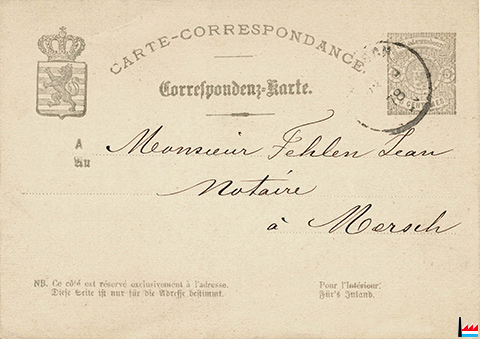 CARTE-CORRESPONDANCE.
Correspondenz-Karte.
CENTIMES
A
An
Monsieur Fehlen Jean
Notaire
à Mersch
NB. Ce côté est réservé exclusivement à l'adresse.
Diese Seite ist nur für die Adresse bestimmt.
Pour l'Intérieur.
Für's Inland.